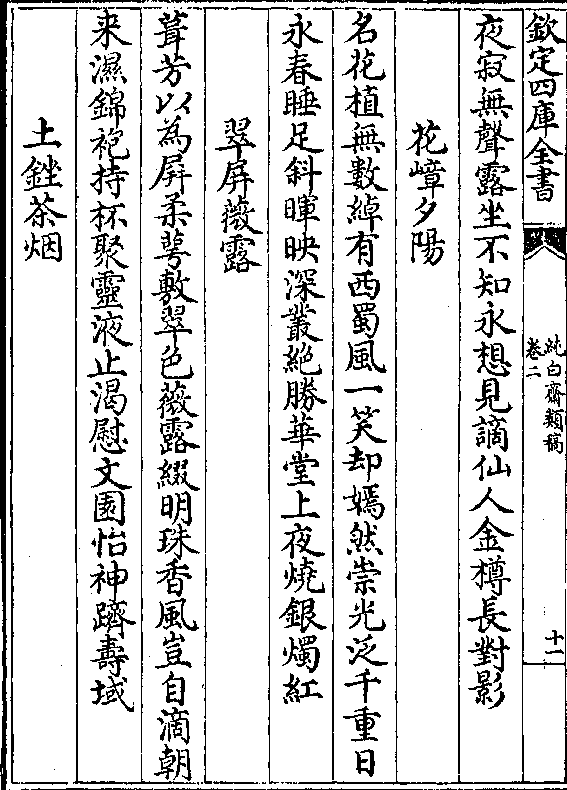 欽定四庫全書
純白齋類稿
卷二
十一
夜寂無聲露坐不知永想見謫仙人金樽長對影
花嶂夕陽
名花植無數綽有西蜀風一笑却嫣然崇光泛千重日
永春睡足斜暉映深叢絶勝華堂上夜燒銀燭紅
翠屏薇露
葺芳以為屏柔蕚敷翠色薇露綴明珠香風豈自滴朝
来濕錦袍持杯聚靈液止渴慰文園怡神躋壽域
土銼茶烟